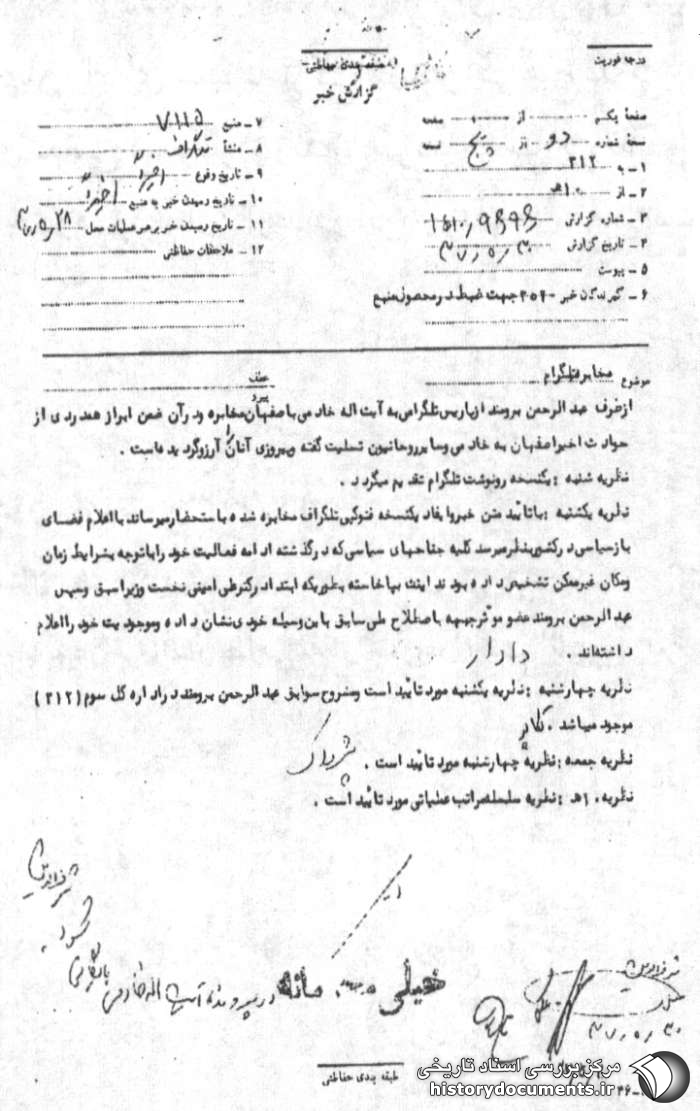 درجه فوریت
طبقه بندی حفاظتی
گزارش خبر
صفحه یکم از صفحه
نسخه شماره دو از پنج نسخه
۱ـ به ۳۱۲
۲ـ از ۱۰هـ
۳ـ شماره گزارش
۴ـ تاریخ گزارش ۳۷,۵,۳۰
۵ـ پیوست
۶ـ گیرندگان خبر جهت ضبط در محصول منبع
۷ـ منبع ۷۱۱۵
۸ـ منشأ تلگراف
۹ـ تاریخ وقوع اخیراً
۱۰ـ تاریخ رسیدن خبر به منبع اخیراً
۱۱ـ تاریخ رسیدن خبر به رهبر عملیات محل
۱۲ـ ملاحظات حفاظتی
موضوع مخابره تلگرام
عطف
پیرو
ازطرف عبد الرحمن برومند ازپاریس تلگرامی به آیت اله خادمی باصفهان مخابره ودرآن ضمن ابراز همدردی از
حوادث اخیراصفهان به خادمی وسایرروحانیون تسلیت گفته وپیروزی آنان را آرزوگردیده‌است .
نظریه شنبه : یکنسخه رونوشت تلگرام تقدیم میگردد .
نظریه یکشنبه : باتأیید متن خبروایفاد یکنسخه فتوکپی تلگراف مخابره شده باستحضارمیرساند بااعلام فضای
بازسیاسی درکشوربنظرمیرسد کلیه جناحهای سیاسی که درگذشته ادامه فعالیت خود راباتوجه بشرایط زمان
ومکان غیرممکن تشخیص داده بودند اینک بپاخاسته بطوریکه ابتدا دکترعلی امینی نخست وزیراسبق وسپس
عبد الرحمن برومند عضو موثرجبهه باصطلاح ملی سابق باین وسیله خودی نشان داده وموجودیت خود رااعلام
داشته‌اند . دارار
نظریه چهارشنبه : نظریه یکشنبه مورد تأیید است ومشروح سوابق عبد الرحمن برومند دراداره کل سوم (۳۱۲)
موجود میباشد .
نظریه جمعه : نظریه چهارشنبه مورد تأیید است .
نظریه ۱۰هـ : نظریه سلسله‌مراتب عملیاتی مورد تأیید است .
در پرونده آیت اله خادمی بایگانی شود
خیلی محرمانه
۳۷,۵,۳۰
طبقه بندی حفاظتی
مرکز بررسی اسناد تاریخی
historydocuments.ir